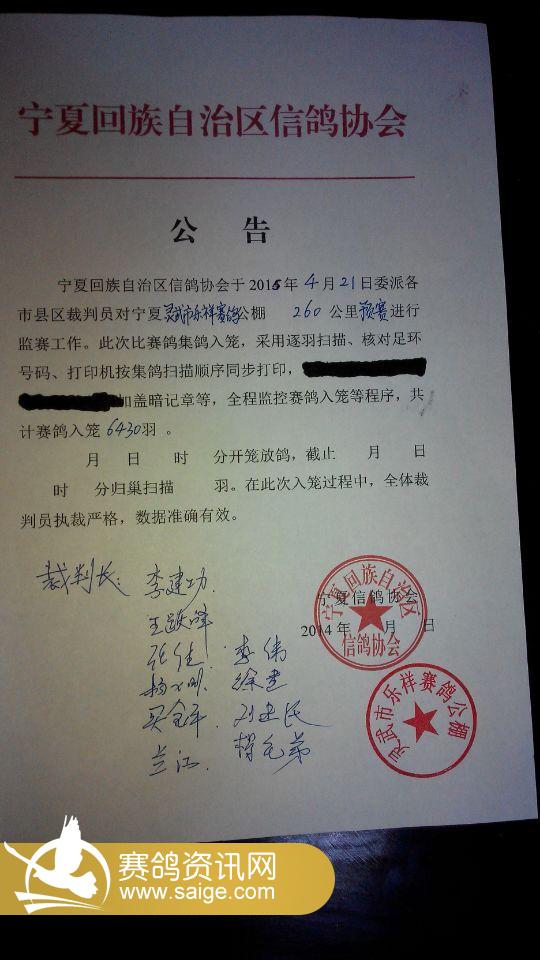 宁夏回族自治区信鸽协会
公 告
宁夏回族自治区信鸽协会于2015年4月21日委派各
市县区裁判员对宁夏灵武市乐祥赛鸽公棚 260 公里预赛进行
监赛工作。此次比赛鸽集鸽入笼，采用逐羽扫描、核对足环
号码、打印机按集鸽扫描顺序同步打印，
加盖暗记章等，全程监控赛鸽入笼等程序，共
计赛鸽入笼 6430羽 。
月 日 时 分开笼放鸽，截止 月 日
时 分归巢扫描 羽。在此次入笼过程中，全体裁
判员执裁严格，数据准确有效。
裁判长：李建功
王跃峰
张佳 李伟
徐
买全军 刘建民
兰江 杨毛弟
宁夏信鸽协会
2014年 月 日
宁夏回族自治区
信鸽协会
灵武市乐祥赛鸽公棚
赛鸽资讯网
www.saige.com